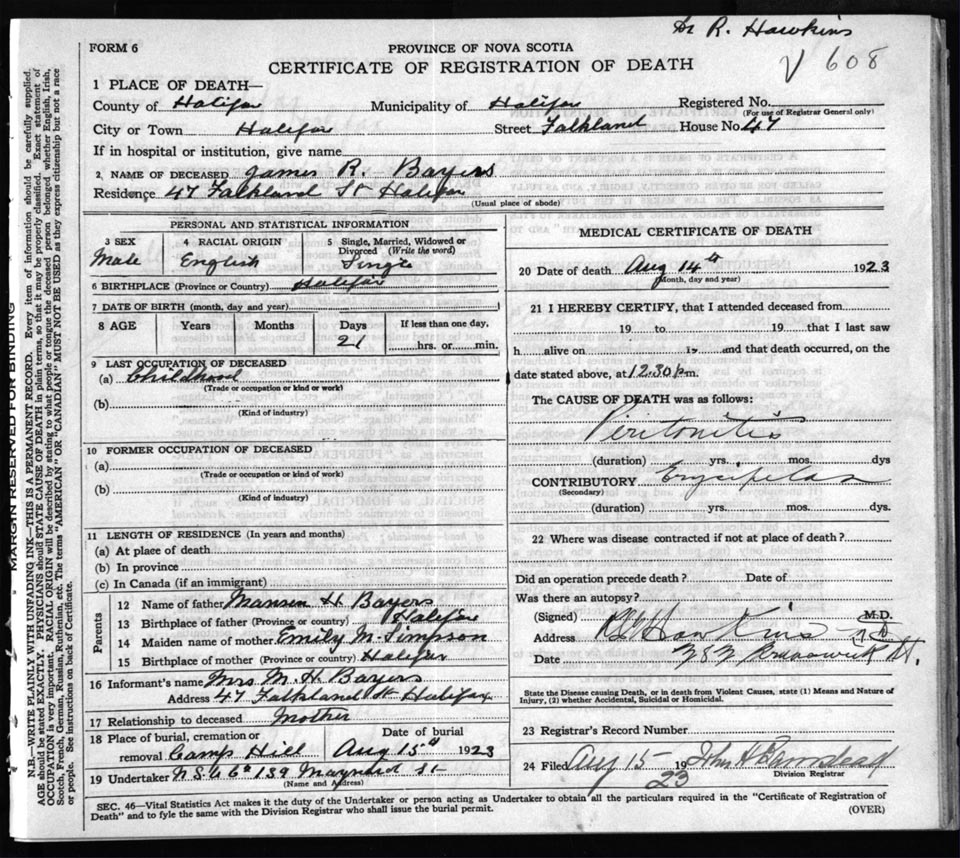 Dr R. Hawkins
FORM 6
PROVINCE OF NOVA SCOTIA
V 608
CERTIFICATE OF REGISTRATION OF DEATH
1 PLACE OF DEATH—
County of Halifax Municipality of Halifax Registered No.
(For use of Registrar General only)
City or Town Halifax Street Falkland House No. 47
If in hospital or institution, give name
2. NAME OF DECEASED James R. Bayers
Residence 47 Falkland St Halifax
(Usual place of abode)
PERSONAL AND STATISTICAL INFORMATION
3 SEX 4 RACIAL ORIGIN 5 Single, Married, Widowed or Divorced (Write the word)
Male English Single
6 BIRTHPLACE (Province or Country) Halifax
7 DATE OF BIRTH (month, day and year)
8 AGE Years Months Days If less than one day,
21 hrs. or min.
9 LAST OCCUPATION OF DECEASED
(a) Childhood
(Trade or occupation or kind or work)
(b)
(Kind of industry)
10 FORMER OCCUPATION OF DECEASED
(a)
(Trade or occupation or kind of work)
(b)
(Kind of industry)
11 LENGTH OF RESIDENCE (In years and months)
(a) At place of death
(b) In province
(c) In Canada (if an immigrant)
Parents
12 Name of father Manson H Bayers
13 Birthplace of father (Province or country) Halifax
14 Maiden name of mother Emily M. Simpson
15 Birthplace of mother (Province or country) Halifax
16 Informant's name Mrs M. H Bayers
Address 47 Falkland St Halifax
17 Relationship to deceased Mother
18 Place of burial, cremation or removal Date of burial
Camp Hill Aug 15th 1923
19 Undertaker N.S.U Co 139 Maynard St
(Name and Address)
MEDICAL CERTIFICATE OF DEATH
20 Date of death Aug 14th 1923
(Month, day and year)
21 I HEREBY CERTIFY, that I attended deceased from
19 to 19 that I last saw
h alive on 19 and that death occurred, on the
date stated above, at 12.30 p.m.
The CAUSE OF DEATH was as follows:
Peritonitis
(duration) yrs. mos. dys
CONTRIBUTORY Erysipelas
(Secondary)
(duration) yrs. mos. dys.
22 Where was disease contracted if not at place of death?
Did an operation precede death? Date of
Was there an autopsy?
(Signed) Hawkins M.D.
Address
Date Brunswick St.
State the Disease causing Death, or in death from Violent Causes, state (1) Means and Nature of
Injury, (2) whether Accidental, Suicidal or Homicidal.
23 Registrar's Record Number
24 Filed Aug 15 19 23
Division Registrar
SEC. 46—Vital Statistics Act makes it the duty of the Undertaker or person acting as Undertaker to obtain all the particulars required in the "Certificate of Registration of
Death" and to fyle the same with the Division Registrar who shall issue the burial permit.
(OVER)
MARGIN RESERVED FOR BINDING
N.B.—WRITE PLAINLY WITH UNFADING INK—THIS IS A PERMANENT RECORD. Every item of information should be carefully supplied.
AGE should be stated EXACTLY. PHYSICIANS should STATE CAUSE OF DEATH in plain terms, so that it may be properly classified. Exact statement of
OCCUPATION is very important. RACIAL ORIGIN will be described by stating to what people or tongue the deceased person belonged whether English, Irish,
Scotch, French, German, Russian, Ruthenian, etc. The terms "AMERICAN" OR "CANADIAN" MUST NOT BE USED as they express citizenship but not a race
or people. See instructions on back of Certificate.